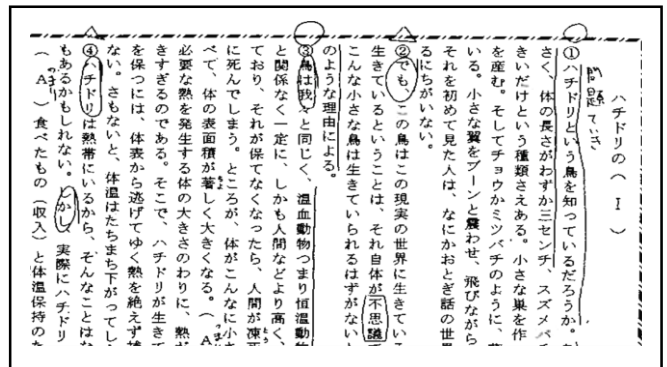 ハチドリの（　I　）
問題ていき
①ハチドリという鳥を知っているだろうか。
さく、体の長さがわずか三センチ、スズメバチ
きいだけという種類さえある。小さな巣を作
を産む。そしてチョウかミツバチのように、
いる。小さな翼をブーンと震わせ、飛びながら
それを初めて見た人は、なにかおとぎ話の世界
るにちがいない。
②でも、この鳥はこの現実の世界に生きてい
生きているということは、それ自体が不思議で
こんな小さな鳥は生きていられるはずがない
のような理由による。
③鳥は我々と同じく、温血動物つまり恒温動物
と関係なく一定に、しかも人間などより高く、
ており、それが保てなくなったら、人間が凍死
に死んでしまう。ところが、体がこんなに小さ
べて、体の表面積が著しく大きくなる。（A
つまり
必要な熱を発生する体の大きさのわりに、熱が
きすぎるのである。そこで、ハチドリが生きて
を保つには、体表から逃げてゆく熱を絶えず補
ない。さもないと、体温はたちまち下がってし
④ハチドリは熱帯にいるから、そんなことはな
もあるかもしれない。しかし、実際にハチドリ
つまり
（　A　）食べたもの（収入）と体温保持のた